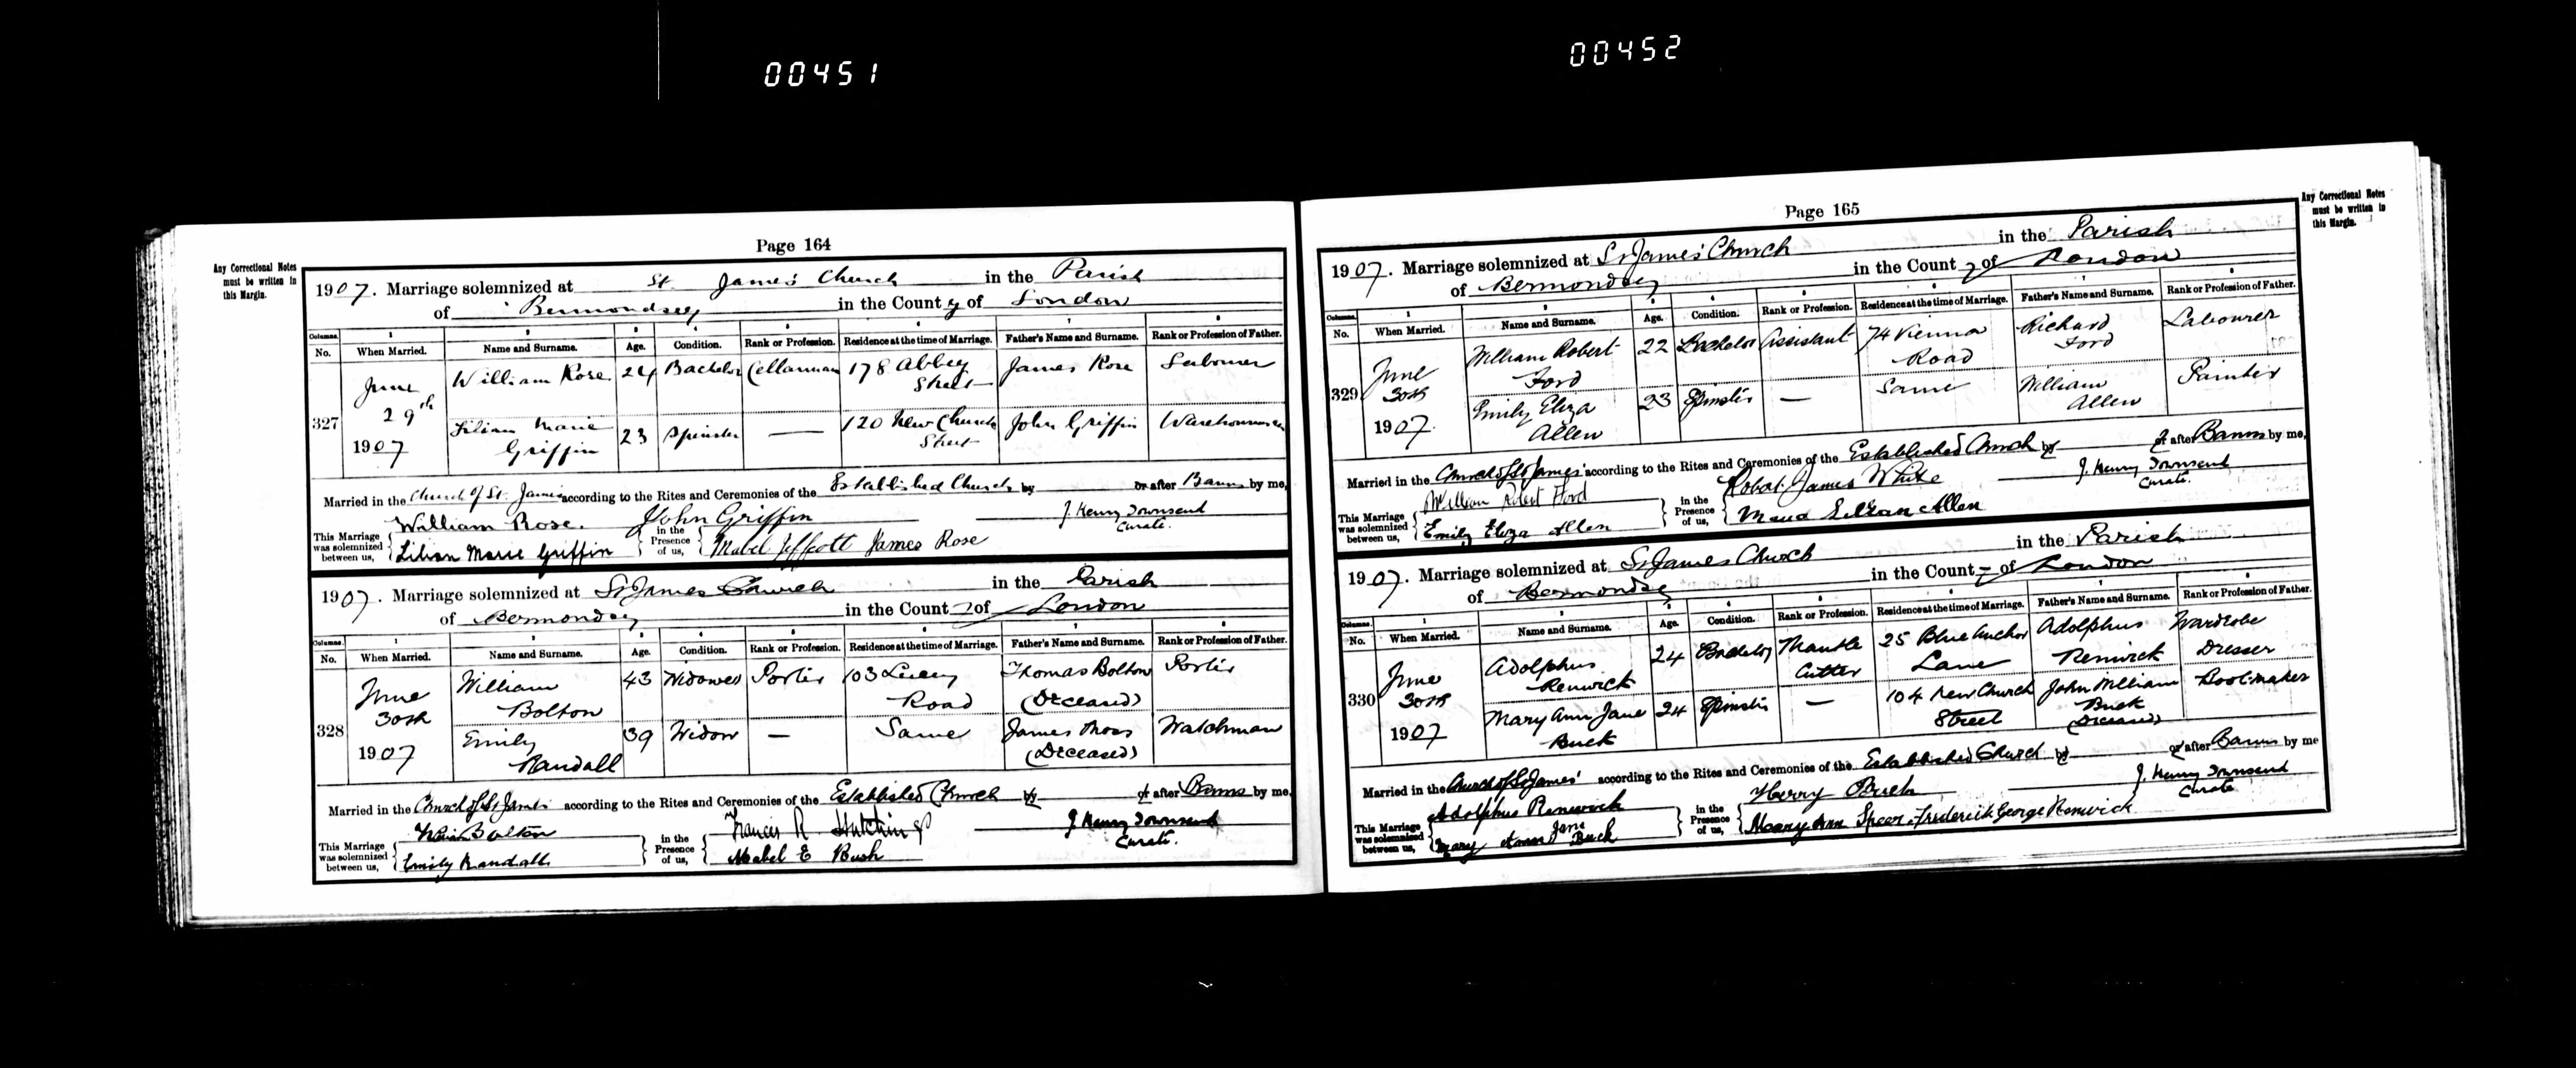 00451
00452
Page 164
Any Correctional Notes
must be written in
this Margin.
1907. Marriage solemnized at St. James' Church in the Parish
of Bermondsey in the County of London
Columns. 1 2 3 4 5 6 7 8
No. When Married. Name and Surname. Age. Condition. Rank or Profession. Residence at the time of Marriage. Father's Name and Surname. Rank or Profession of Father.
327 June 29th 1907 William Rose 24 Bachelor Cellarman 178 Abbey Street James Rose Labourer
Lilian Marie Griffin 23 Spinster — 120 New Church Street John Griffin Warehouseman
Married in the Church of St. James according to the Rites and Ceremonies of the Established Church by or after Banns by me,
This Marriage was solemnized between us, William Rose. Lilian Marie Griffin in the Presence of us, John Griffin Mabel Jeffcott James Rose J. Henry Townsend Curate.
1907. Marriage solemnized at St James Church in the Parish
of Bermondsey in the County of London
Columns. 1 2 3 4 5 6 7 8
No. When Married. Name and Surname. Age. Condition. Rank or Profession. Residence at the time of Marriage. Father's Name and Surname. Rank or Profession of Father.
328 June 30th 1907 William Bolton 43 Widower Porter 103 Lucey Road Thomas Bolton (Deceased) Porter
Emily Randall 39 Widow — Same James Moss (Deceased) Watchman
Married in the Church of St James according to the Rites and Ceremonies of the Established Church by or after Banns by me,
This Marriage was solemnized between us, Bolton Emily Randall in the Presence of us, Francis R Hutchings Mabel E Bush J. Henry Townsend Curate.
Page 165
Any Correctional Notes
must be written in
this Margin.
1907. Marriage solemnized at St James' Church in the Parish
of Bermondsey in the County of London
Columns. 1 2 3 4 5 6 7 8
No. When Married. Name and Surname. Age. Condition. Rank or Profession. Residence at the time of Marriage. Father's Name and Surname. Rank or Profession of Father.
329 June 30th 1907 William Robert Ford 22 Bachelor Assistant 74 Vienna Road Richard Ford Labourer
Emily Eliza Allen 23 Spinster — Same William Allen Painter
Married in the Church of St James' according to the Rites and Ceremonies of the Established Church by or after Banns by me,
This Marriage was solemnized between us, William Robert Ford Emily Eliza Allen in the Presence of us, Robert James White Maud Lillian Allen J. Henry Townsend Curate.
1907. Marriage solemnized at St James Church in the Parish
of Bermondsey in the County of London
Columns. 1 2 3 4 5 6 7 8
No. When Married. Name and Surname. Age. Condition. Rank or Profession. Residence at the time of Marriage. Father's Name and Surname. Rank or Profession of Father.
330 June 30th 1907 Adolphus Renwick 24 Bachelor Mantle Cutter 25 Blue Anchor Lane Adolphus Renwick Wardrobe Dresser
Mary Ann Jane Buck 24 Spinster — 104 New Church Street John William Buck (Deceased) Bootmaker
Married in the Church of St James' according to the Rites and Ceremonies of the Established Church by or after Banns by me
This Marriage was solemnized between us, Adolphus Renwick Mary Ann Jane Buck in the Presence of us, Harry Buck Mary Ann Speer Frederick George Renwick J. Henry Townsend Curate